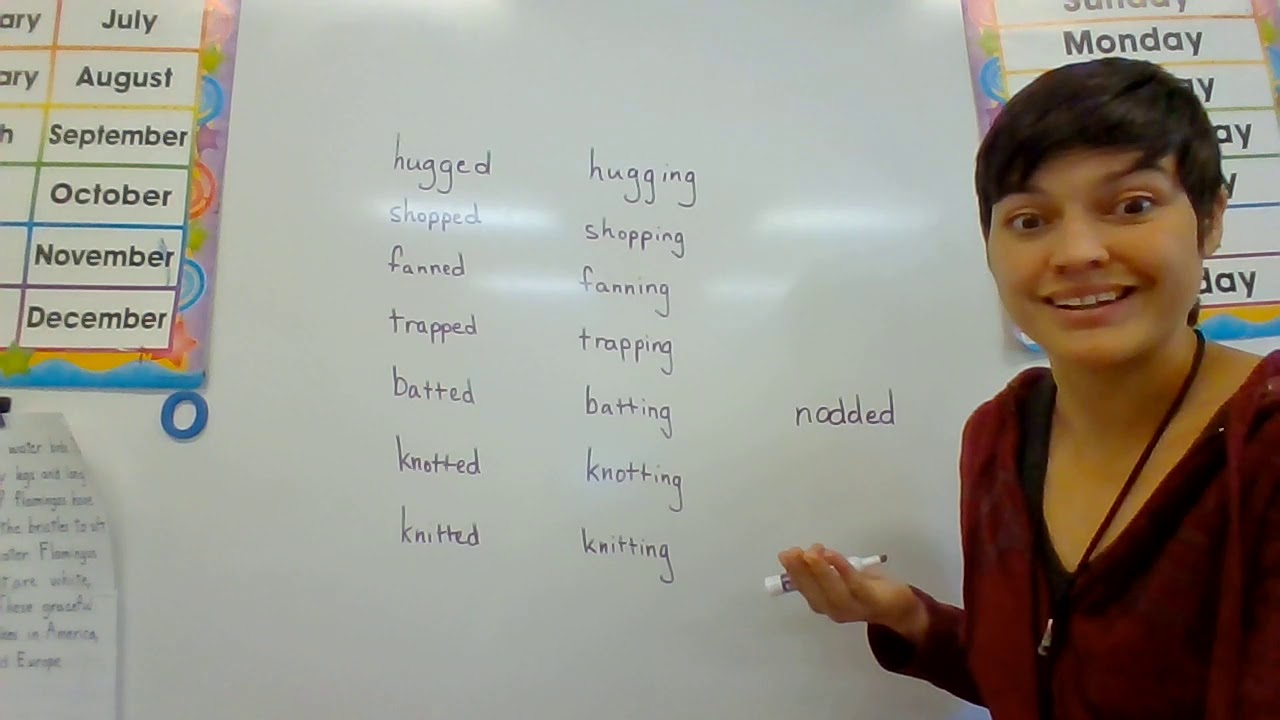 July
August
September
October
November
December
Sunday
Monday
hugged hugging
shopped shopping
fanned fanning
trapped trapping
batted batting nodded
knotted knotting
knitted knitting
water
legs and
flamingos have
the bristles to
Flamingos
are white,
These graceful
in America,
Europe